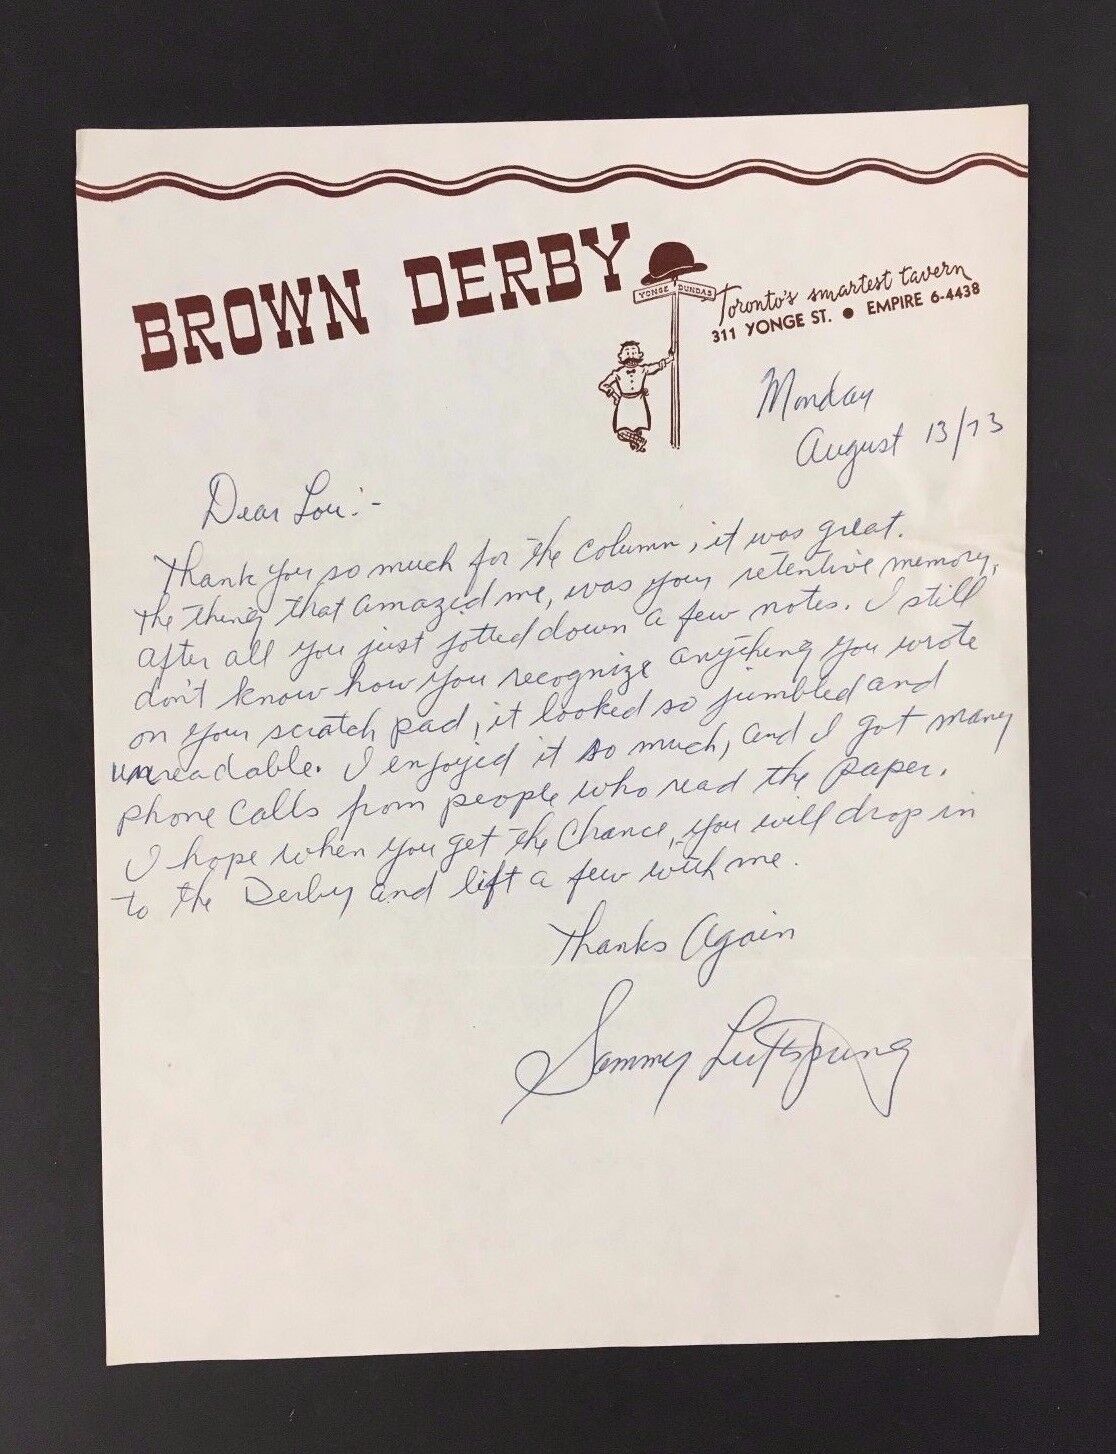 BROWN DERBY
YONGE DUNDAS
Toronto's smartest tavern
311 YONGE ST. ● EMPIRE 6-4438
Monday
August 13/73
Dear Lou:-
Thank you so much for the column, it was great.
The thing that amazed me, was your retentive memory,
after all you just jotted down a few notes. I still
don't know how you recognize anything you wrote
on your scratch pad, it looked so jumbled and
unreadable. I enjoyed it so much, and I got many
phone calls from people who read the paper.
I hope when you get the chance, you will drop in
to the Derby and lift a few with me.
Thanks Again
Sammy Luftspring